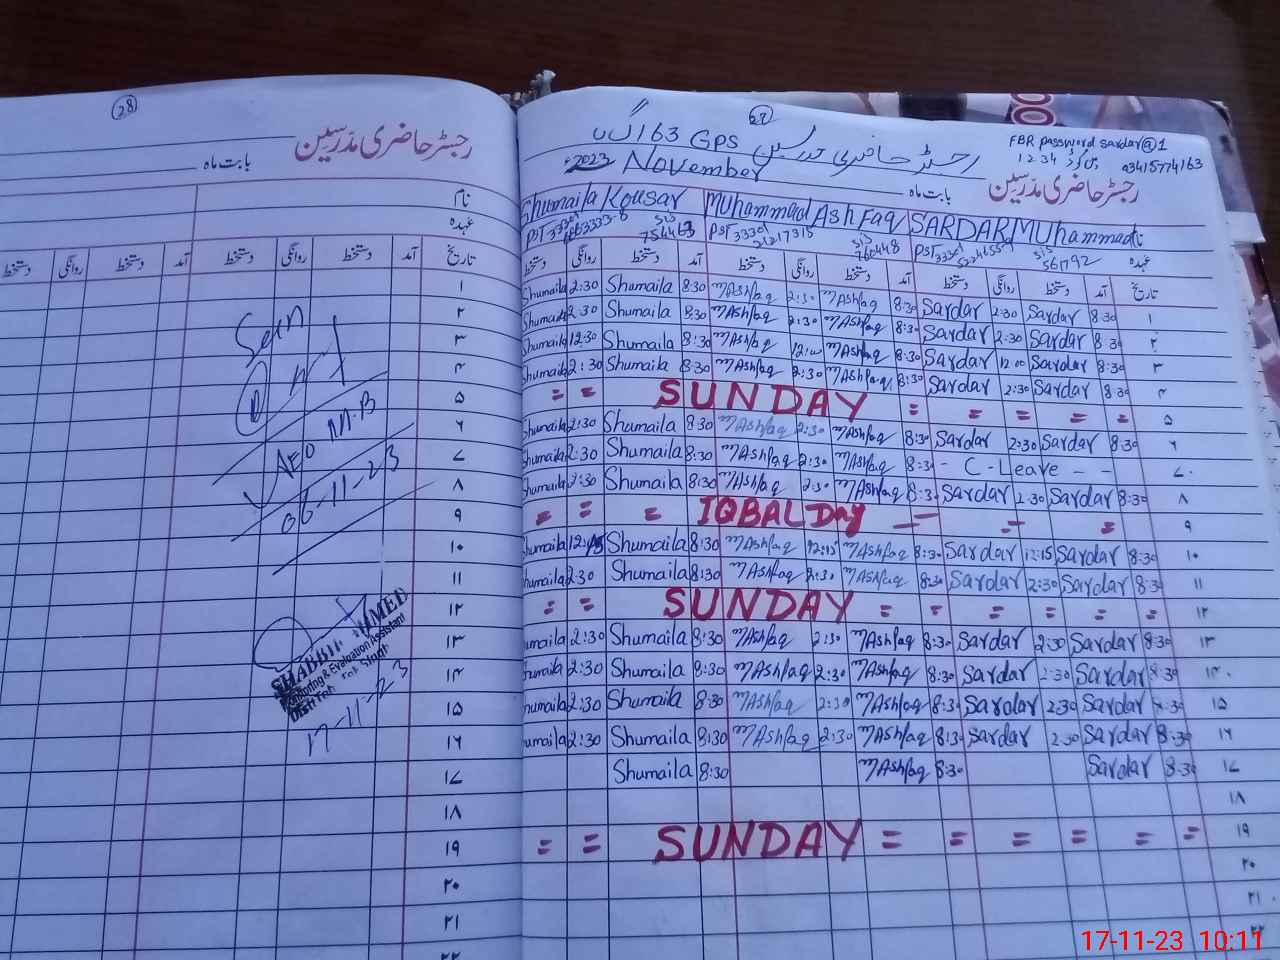 28
رجسٹر حاضری مدرسین
بابت ماہ
نام
عہدہ
تاریخ آمد دستخط روانگی دستخط آمد دستخط روانگی دستخط
۱
۲
۳
۴
۵
۶
۷
۸
۹
۱۰
۱۱
۱۲
۱۳
۱۴
۱۵
۱۶
۱۷
۱۸
۱۹
۲۰
۲۱
۲۲
Seen
AEO M.B
06-11-23
SHABBIR AHMED
Monitoring & Evaluation Assistant
17-11-23
163 GPS رجسٹر حاضری مدرسین
FBR password sardar@1
1234
03415774163
2023 November
بابت ماہ
رجسٹر حاضری مدرسین
Shumaila Kousar Muhammad Ashfaq SARDAR Muhammad
PST 33301 754463 PST 33301 21217315 760448 PST 33301 561792 عہدہ
دستخط روانگی دستخط آمد دستخط روانگی دستخط آمد دستخط روانگی دستخط آمد تاریخ
Shumaila 2:30 Shumaila 8:30 MAshfaq 2:30 MAshfaq 8:30 Sardar 2:30 Sardar 8:30 ۱
Shumaila 2:30 Shumaila 8:30 MAshfaq 2:30 MAshfaq 8:30 Sardar 2:30 Sardar 8:30 ۲
Shumaila 12:30 Shumaila 8:30 MAshfaq 12:00 MAshfaq 8:30 Sardar 12:00 Sardar 8:30 ۳
Shumaila 2:30 Shumaila 8:30 MAshfaq 2:30 MAshfaq 8:30 Sardar 2:30 Sardar 8:30 ۴
= = SUNDAY = = = = = ۵
Shumaila 2:30 Shumaila 8:30 MAshfaq 2:30 MAshfaq 8:30 Sardar 2:30 Sardar 8:30 ۶
Shumaila 2:30 Shumaila 8:30 MAshfaq 2:30 MAshfaq 8:30 - C-Leave - - ۷
Shumaila 2:30 Shumaila 8:30 MAshfaq 2:30 MAshfaq 8:30 Sardar 2:30 Sardar 8:30 ۸
= = = IQBAL Day = = = ۹
Shumaila 12:15 Shumaila 8:30 MAshfaq 12:15 MAshfaq 8:30 Sardar 12:15 Sardar 8:30 ۱۰
Shumaila 2:30 Shumaila 8:30 MAshfaq 2:30 MAshfaq 8:30 Sardar 2:30 Sardar 8:30 ۱۱
= = SUNDAY = = = = = = ۱۲
Shumaila 2:30 Shumaila 8:30 MAshfaq 2:30 MAshfaq 8:30 Sardar 2:30 Sardar 8:30 ۱۳
Shumaila 2:30 Shumaila 8:30 MAshfaq 2:30 MAshfaq 8:30 Sardar 2:30 Sardar 8:30 ۱۴
Shumaila 2:30 Shumaila 8:30 MAshfaq 2:30 MAshfaq 8:30 Sardar 2:30 Sardar 8:30 ۱۵
Shumaila 2:30 Shumaila 8:30 MAshfaq 2:30 MAshfaq 8:30 Sardar 2:30 Sardar 8:30 ۱۶
Shumaila 8:30 MAshfaq 8:30 Sardar 8:30 ۱۷
۱۸
= = SUNDAY = = = = = = ۱۹
۲۰
۲۱
۲۲
17-11-23 10:11